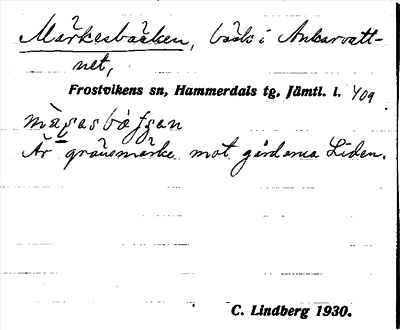 Märkesbäcken, bäck i Ankarvatt-
net,
Frostvikens sn, Hammerdals tg, Jämtl. l. 409
Är gränsmärke mot gårdarna Liden.
C. Lindberg 1930.